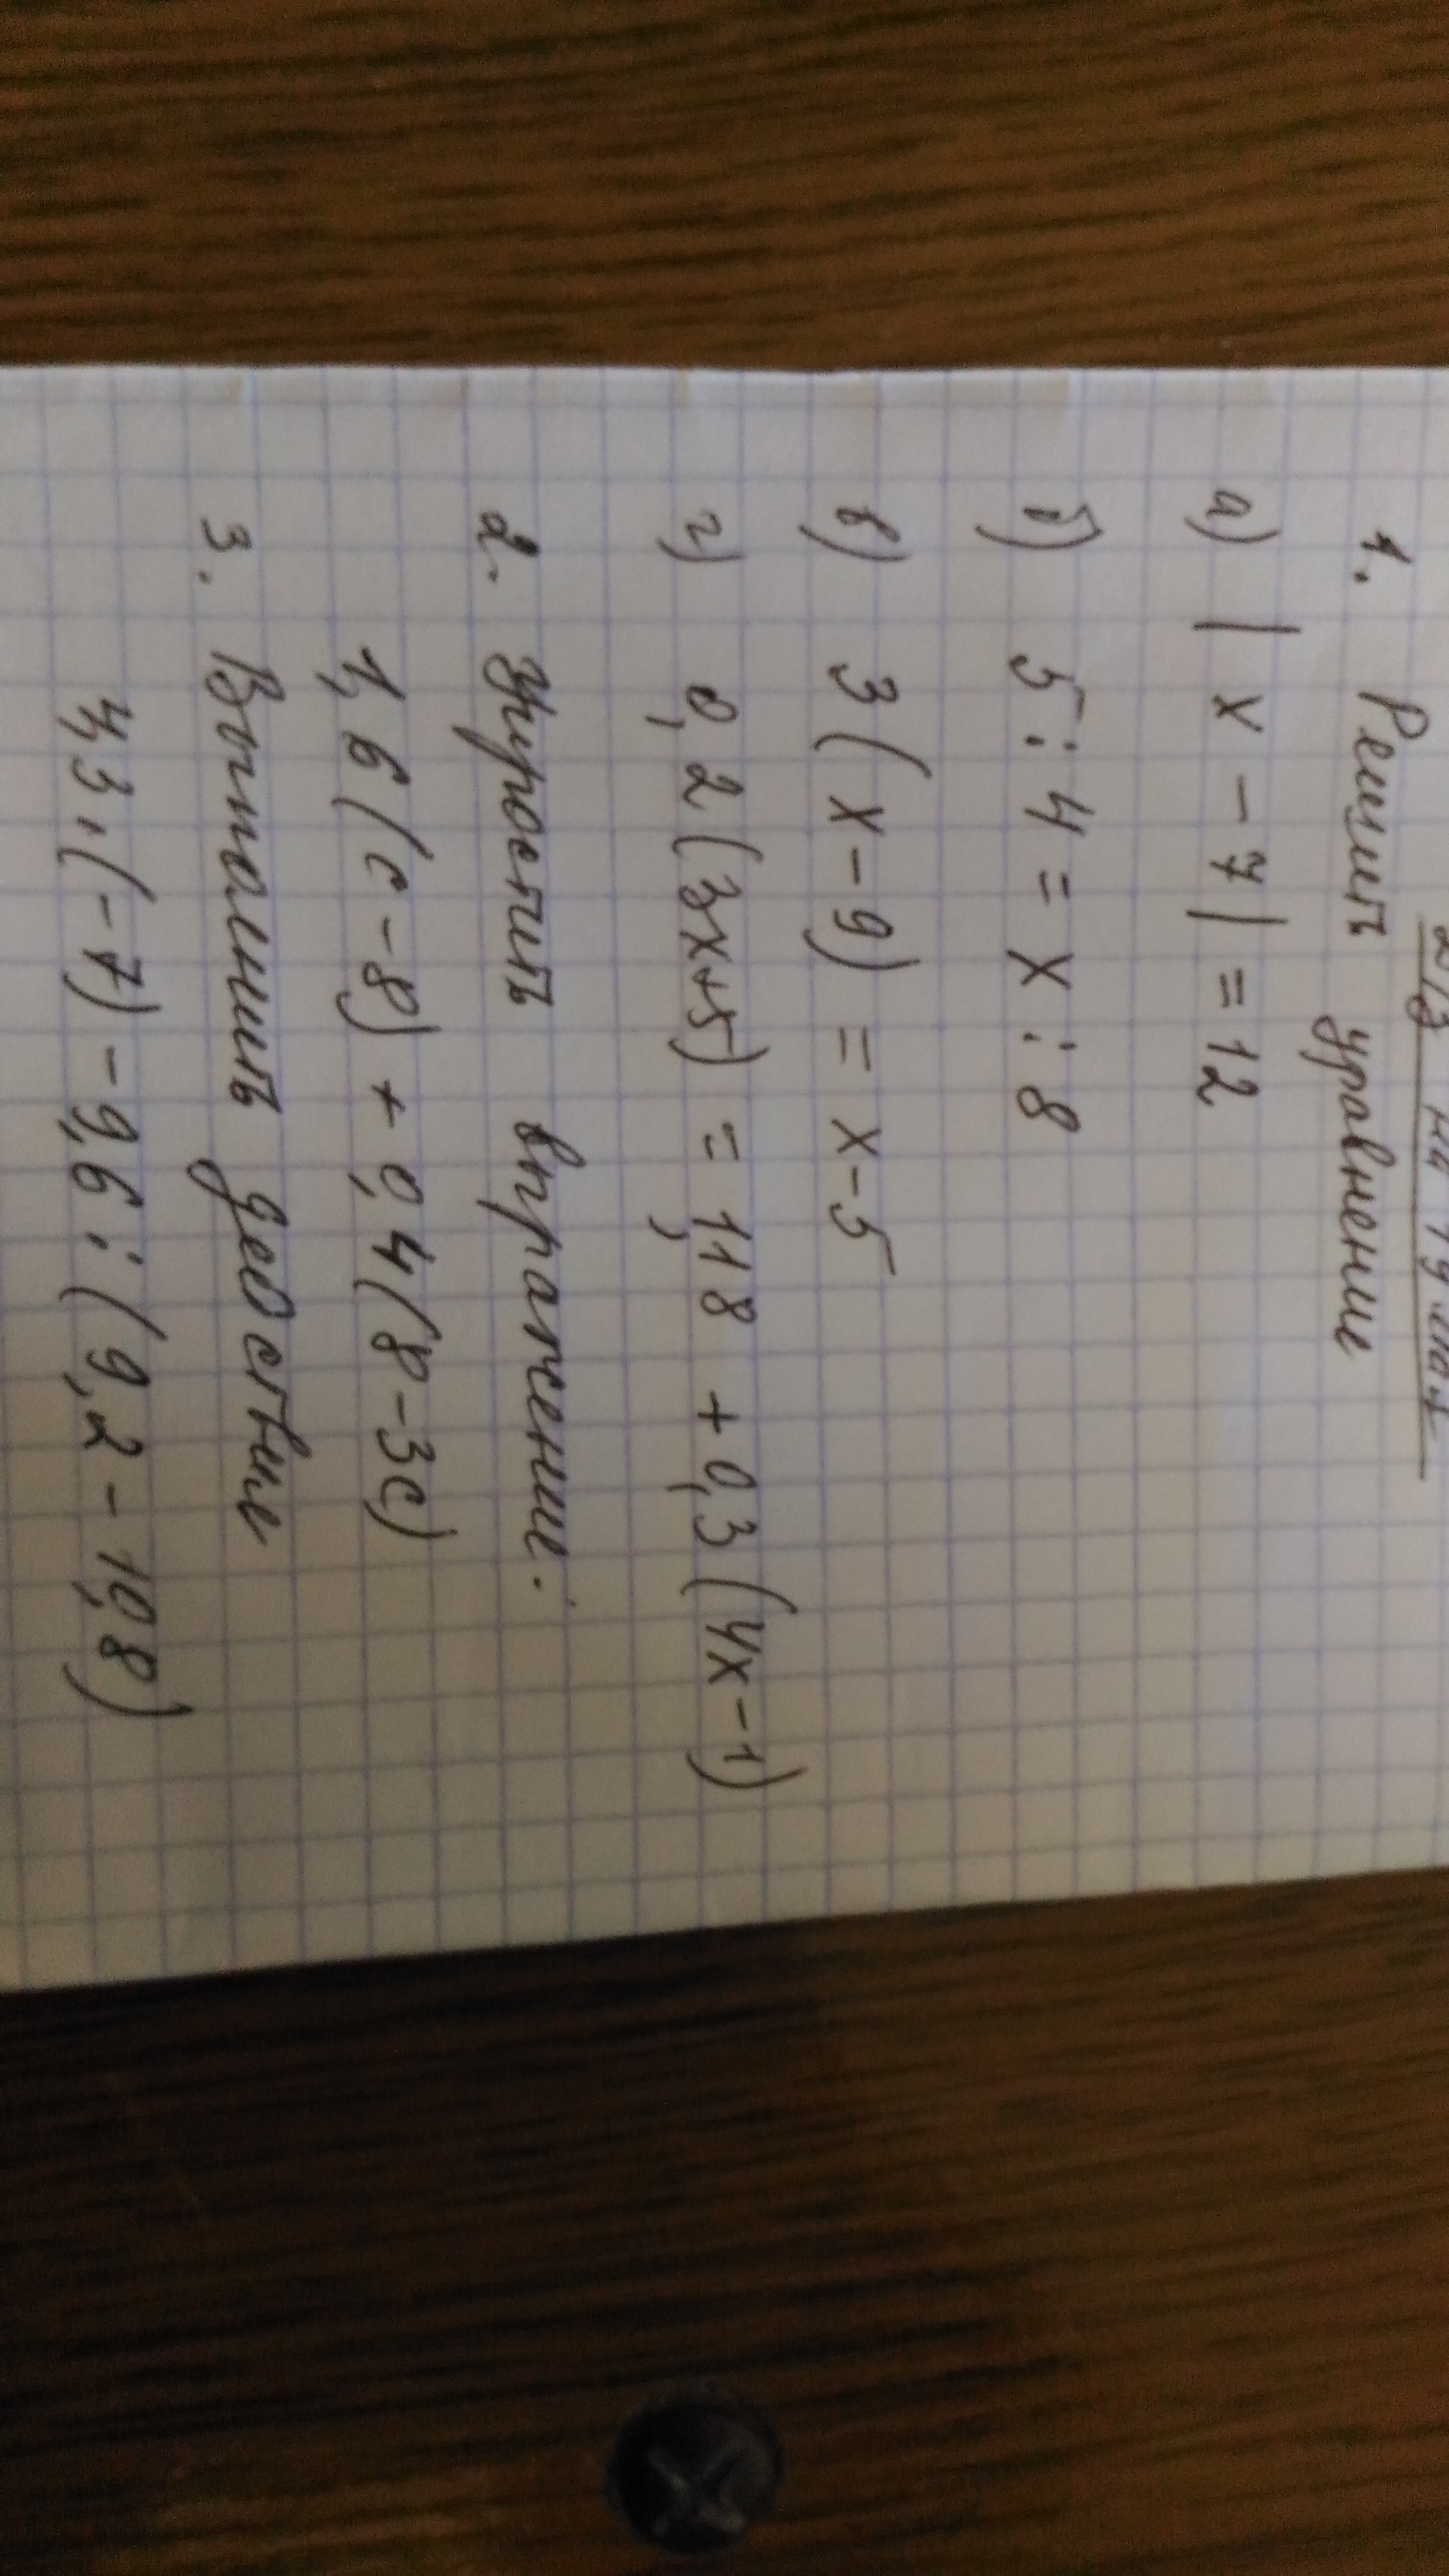 на
1. Решить уравнение
а) | x - 7 | = 12
б) 5 : 4 = x : 8
в) 3 (x - 9) = x - 5
г) 0,2 (3x+5) = 1,18 + 0,3 (4x - 1)
2. Упростить выражение.
1,6 (c - 8) + 0,4 (8 - 3c)
3. Выполнить действие
4,3 · (- 7) - 9,6 : (9,2 - 10,8)